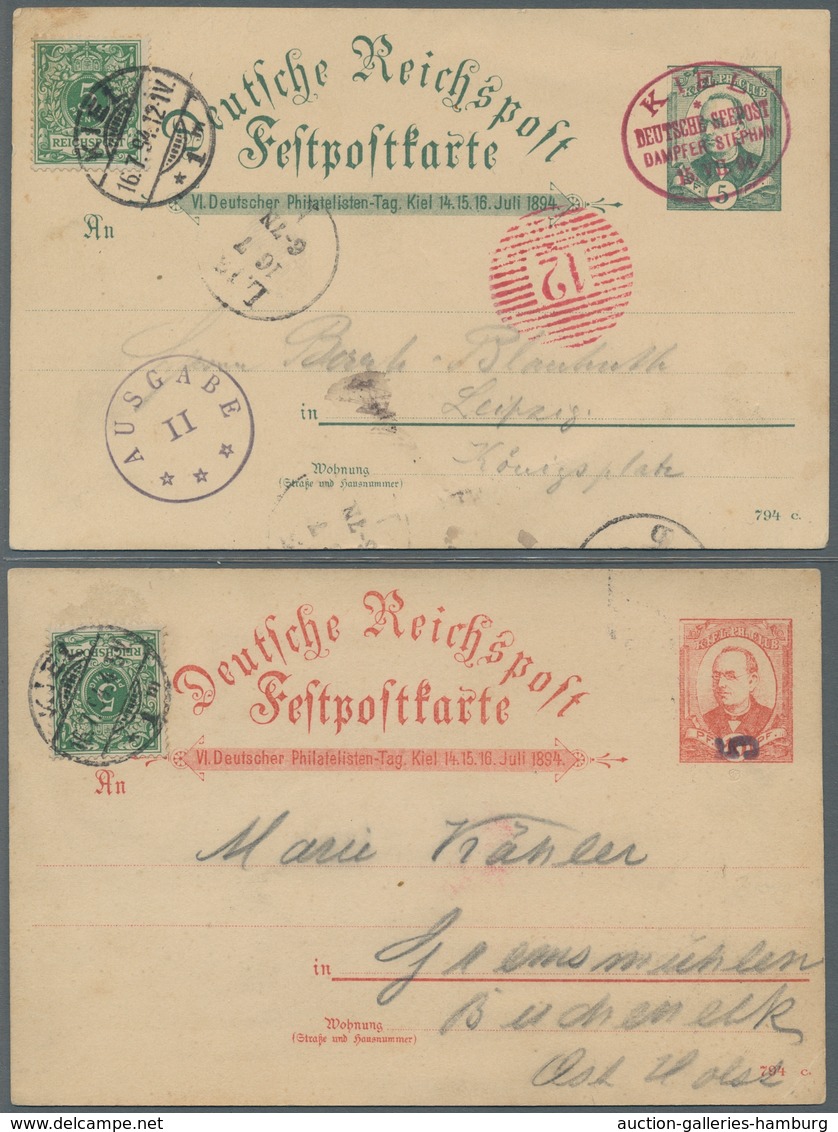 Deutsche Reichspost
Festpostkarte
VI. Deutscher Philatelisten-Tag. Kiel 14. 15. 16. Juli 1894.
REICHSPOST
KIEL
16.7.94.12-1V.
* 1 *
KIEL. PH. CLUB
5
KIEL
*
DEUTSCHE SEEPOST
DAMPFER STEPHAN
16 VII 94
An
16 7
6-7N
12
Blanhuth
AUSGABE
II
in
Leipzig
Wohnung
(Straße und Hausnummer)
Königsplatz
794 c.
Deutsche Reichspost
Festpostkarte
VI. Deutscher Philatelisten-Tag. Kiel 14. 15. 16. Juli 1894.
REICHSPOST
5
KIEL
KIEL. PH. CLUB
PF.
PF.
5
An
Marie Kähler
in
Gremsmühlen
Wohnung
(Straße und Hausnummer)
Ost Holst
794 c.
auction-galleries-hamburg